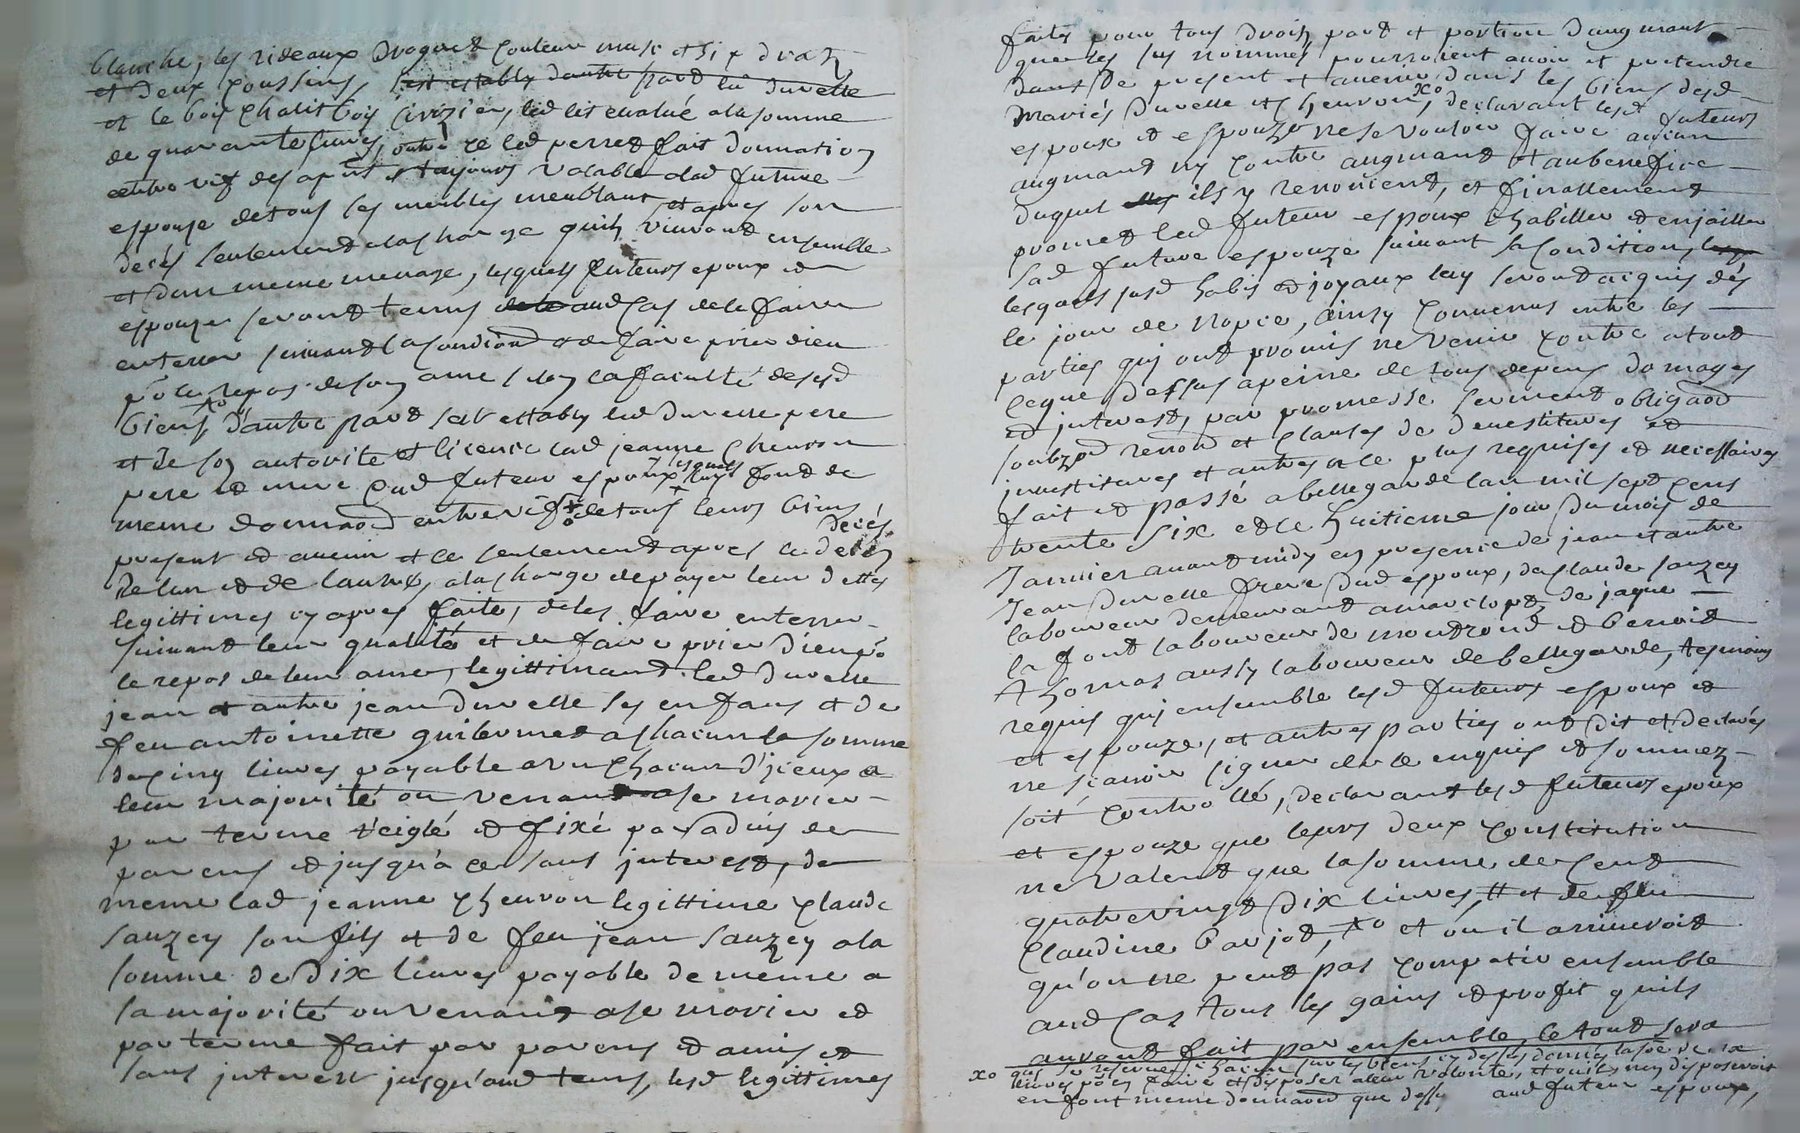 blanche, les rideaux droguet couleur musc et six draps
et deux coussins s'est estably d'autre part lu duvelle
et le bois chalit bois cerisier, led lit evalué a la somme
de quarante livres, outre ce led perret fait donnation
entre vifs des apnt et toujours valable alad future
espouse de tous ses meubles meublant et apres son
decés seulement a la charge quils vivront ensemble
et dans meme menage, lesquels futeurs epoux et
espouse seront tenus aud cas de le faire
enterrer suivant sa condiōn et de faire prier dieu
po le repos de son ame selon la faculté desesd
biens, xo d'autre part s'est estably led duvelle pere
et de son autorité et licence lad jeanne chevron
pere et mere dud futeur espoux lesquels luy font de
meme donnaōn entrevifs de tous leurs biens
present et avenir et ce seulement apres le decés
de lun et de lautre, a la charge de payer leur dettes
legittimes cy apres faite, de les faire enterrer
suivant leur qualité et de faire prier dieu po
le repos de leur ame, legittimant led duvelle
jean et autre jean duvelle ses enfans et de
feu antoinette guillermet a chacun la somme
de cinq livres payable a un chacun d'jceux a
leur majorité ou venant a se marier
par terme reiglé et fixé par advis de
parens et jusqu'a ce sans jnterest, de
meme lad jeanne chevron legittime claude
sauzey son fils et de feu jean sauzey a la
somme de dix livres payable de meme a
sa majorité ou venant a se marier et
par terme fait par parens et amis et
sans jnterest jusqu'aud tems, lesd legittimes
faites pour tous droits part et portion d'augmant
que les sus nommés pourroient avoir et pretendre
dans de present et avenir dans les biens desd
mariés duvelle et chevron, xo declarant lesd futeurs
espoux et espouze ne se vouloir faire aucun
augmant ny contre augmant et au benefice
duquel ils y renoncent, et finallement
promet led futeur espoux d'habiller et enjoailler
sad future espouze suivant sa condition,
lesquels susd habis et joyaux luy seront acquis dés
le jour de nopce, ainsy convenus entre les
parties qui ont promis ne venir contre a tout
ceque dessus a peine de tous depens domages
et jnterest, par promesse serment obligaōn
soubzmō renonō et clauses de devestitures et
jnvestitures et autres a ce plus requises et necessaires
fait et passé a bellegarde lan mil sept cens
trente six et le huitieme jour du mois de
janvier avant midy en presence de jean et autre
jean duvelle frere dud espoux, de claude sauzey
laboureur demeurant a marclopt, de jaque
lafont laboureur de montrond et benoit
thomas aussy laboureur de bellegarde, tesmoins
requis qui ensemble lesd futeurs espoux et
et espouze, et autres parties ont dit et declarés
ne sçavoir signer de ce enquis et sommez
soit controllé, declarant lesd futeurs epoux
et espouze que leurs deux constitution
ne valent que la somme de cent
quatre vingt dix livres, # et de feu
claudine barjot, xo et ou il arriveroit
qu'on ne peut pas compatir ensemble
aud cas tous les gains et profit quils
auront fait par ensemble, le tout sera
xo qui se reservent chacun sur les biens cy dessus donnés la soē de
livres po en faire et disposer a leur volonté, et ou ils nen disposeroit
en font meme donnaōn que dessus aud futeur espoux,